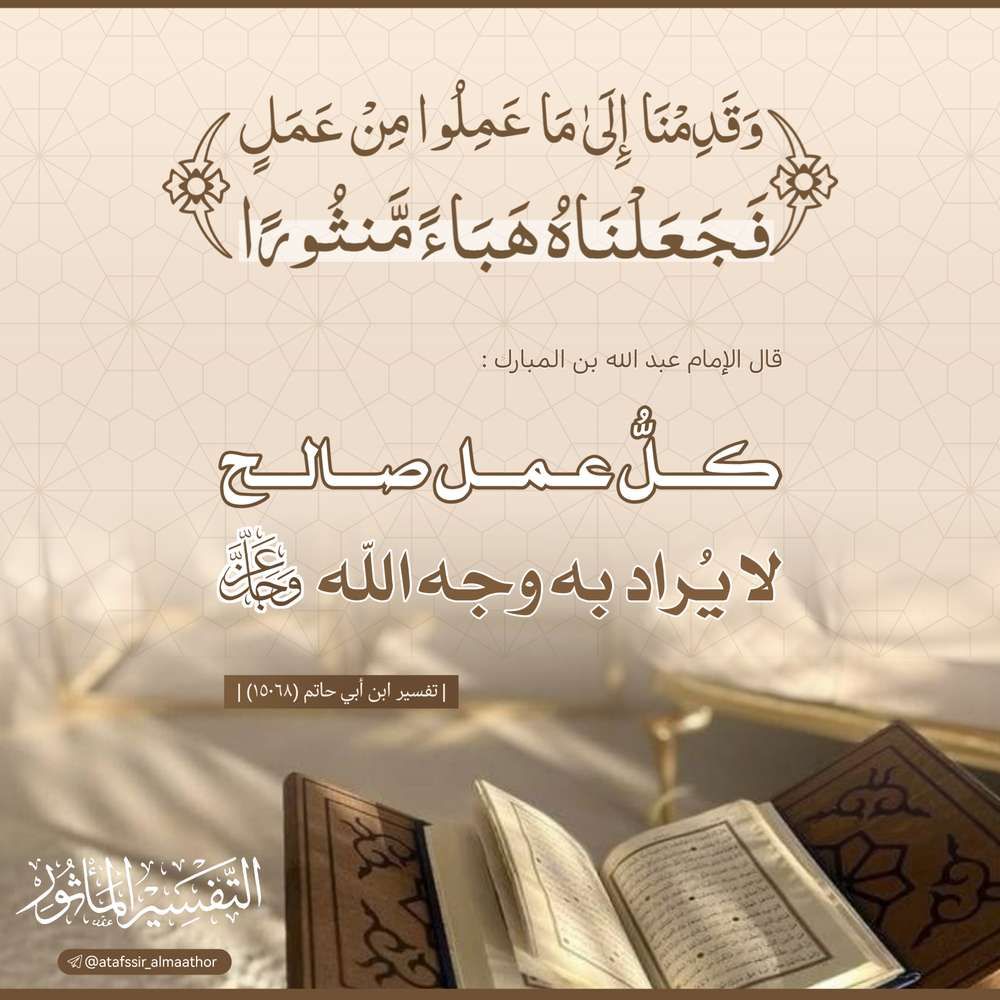 وَقَدِمْنَا إِلَىٰ مَا عَمِلُوا مِنْ عَمَلٍ
فَجَعَلْنَاهُ هَبَاءً مَّنثُورًا
قال الإمام عبد الله بن المبارك :
كلُّ عمل صالح
لا يُراد به وجه اللّه عَزَّ وَجَلَّ
| تفسير ابن أبي حاتم (١٥٠٦٨) |
التَّفْسِيْرُ المَأْثُورُ
@atafssir_almaathor